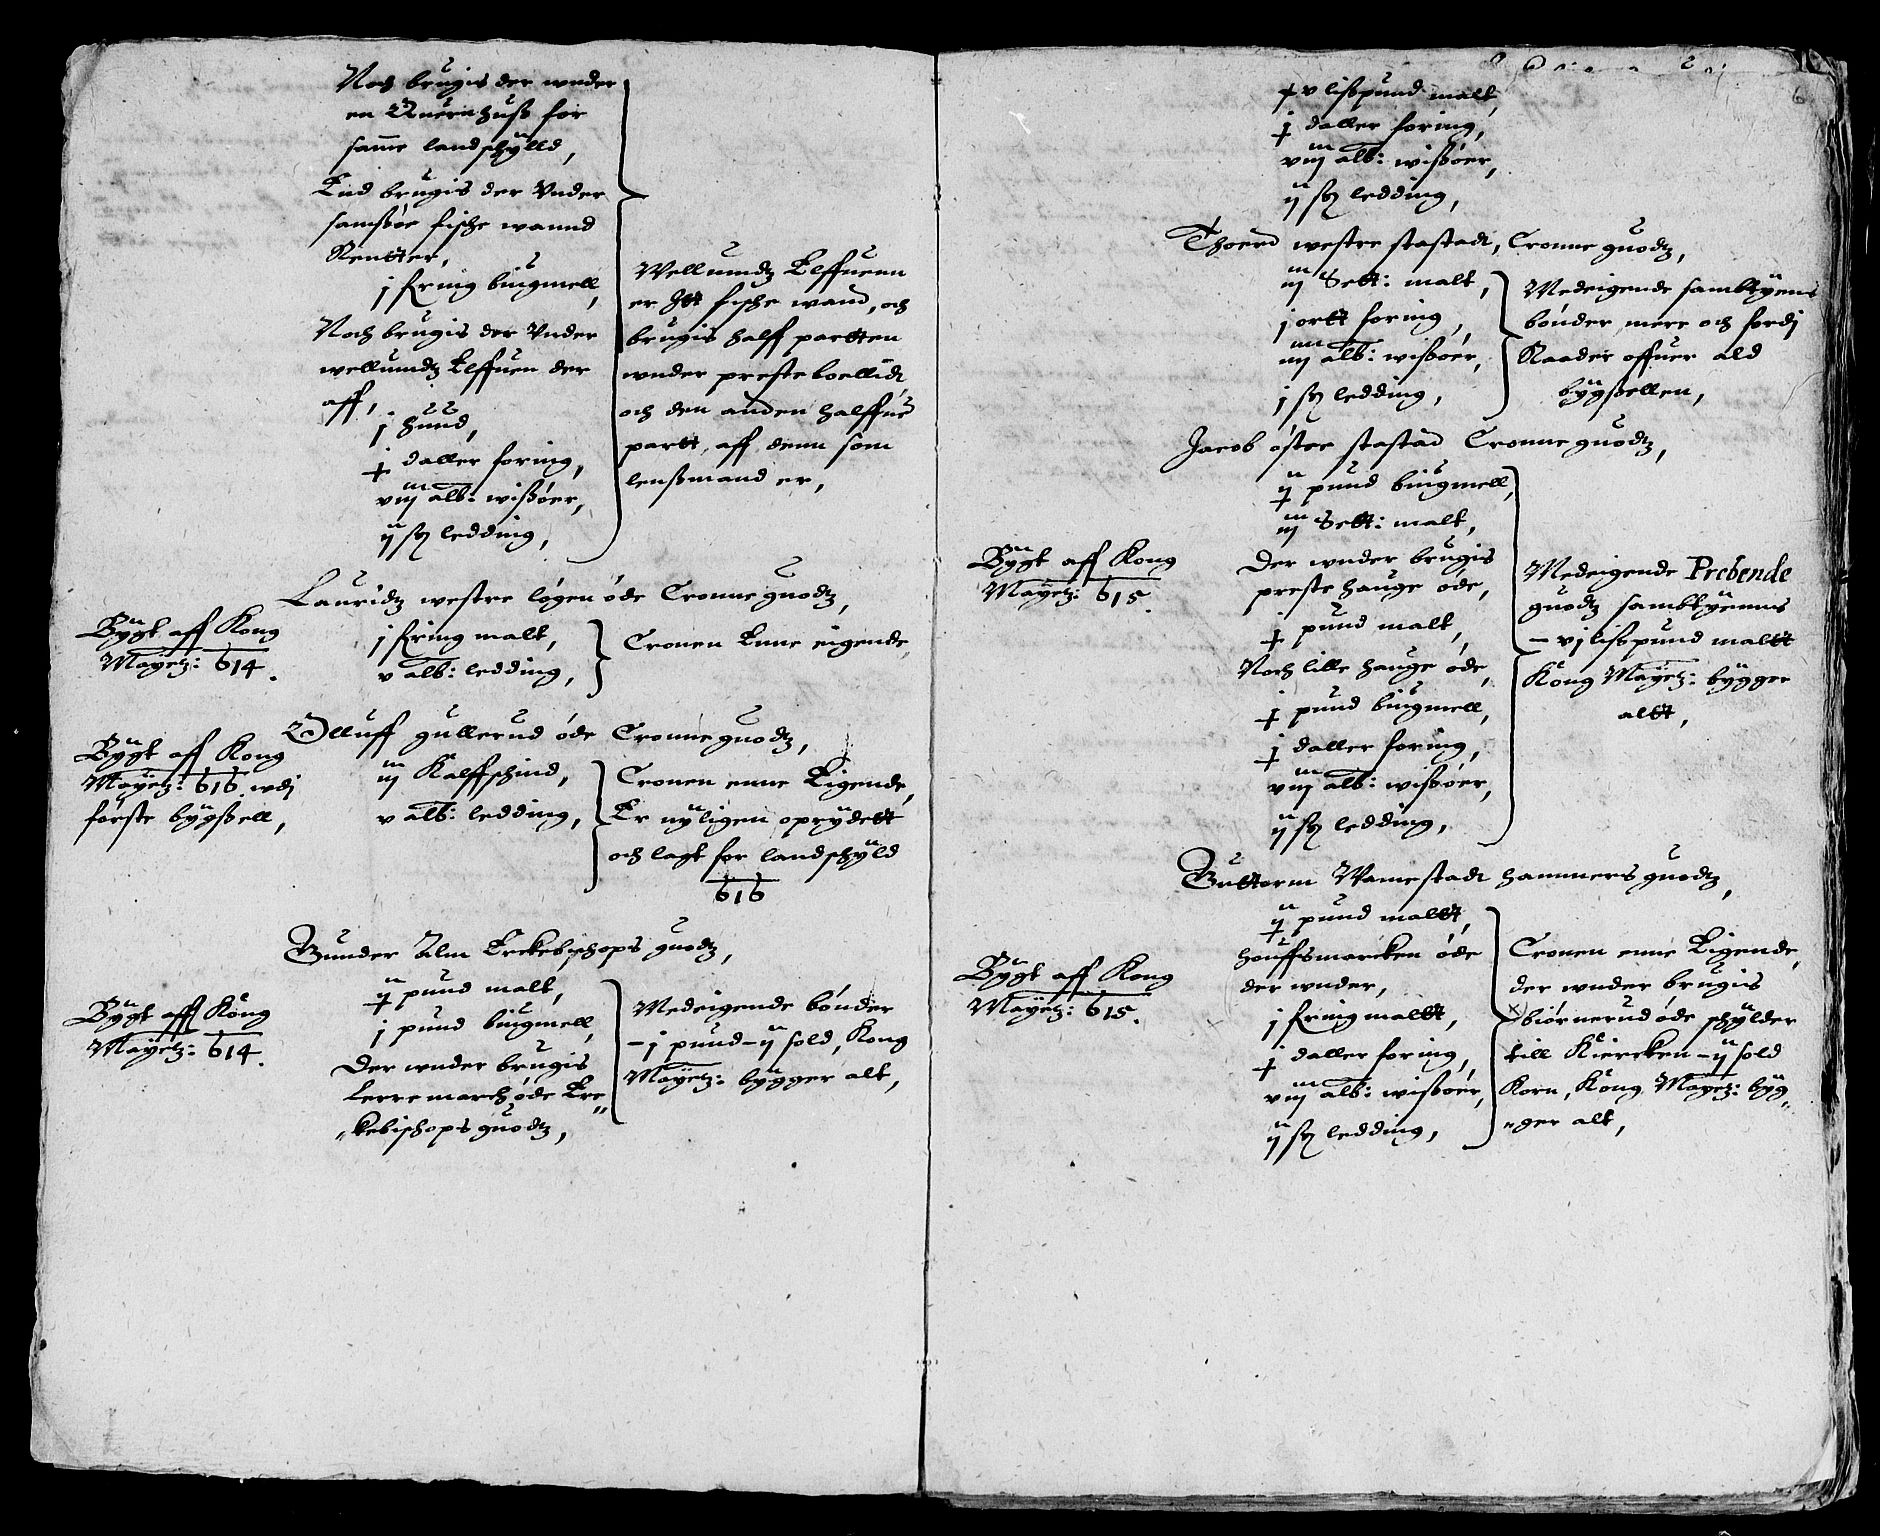 Noch brugis der wnder
en Quernhuss for
samme landschylld,
End brugis der Vnder
samssøe fische wannd
Rentter,
j fring biugmell,
Noch brugis der Vnder
wellumdtz Elffuen der
aff,
j hund,
j daller foring,
viij alb: wissøer,
ij sz ledding,
Wellumdtz Elffuenn
er Itt fische wand, och
brugis halff partten
wnder presteboellidt,
och den anden halffue
partt, aff denn som
lenssmand er,
Lauridtz westre løgen øde Cronne guodtz,
Bygt aff Kong
Mayetz: 614.
j fring malt,
v alb: ledding,
Cronen Enne eigende,
Olluff gullerud øde Cronne guodtz,
Bygt aff Kong
Mayetz: 616. wdj
første bygssell,
iij Kalffschind,
v alb: ledding,
Cronen enne Eigende,
Er nyligen oprydett
och lagt for landschyld
616
Gunder Alm Erckebischops guodtz,
Bygt aff Kong
Mayetz: 614.
ij pund malt,
j pund biugmell,
Der wnder brugis
Lerremarch øde Erc„
„kebischops guodtz,
Medeigende bønder
– j pund – ij sold, Kong
Mayetz: bygger alt,
6
v lisspund malt,
j daller foring,
viij alb: wissøer,
ij sz ledding,
Thoerd westre stastadt, Cronne guodtz,
iij Sett: malt,
j ortt foring,
iiij alb: wissøer,
j sz ledding,
Medeigende sambtyens
bønder mere och fordj
Raader offuer ald
bygssellen,
Jacob øster stastad Cronne guodtz,
Bygt aff Kong
Mayetz: 615.
ij pund biugmell,
iij Sett: malt,
Der wnder brugis
prestehauge øde,
pund malt,
Noch lille hauge øde,
j pund biugmell,
j daller foring,
viij alb: wissøer,
ij sz ledding,
Medeigende Prebende
guodtz sambtyennis
– vj lisspund maltt
Kong Mayetz: bygger
altt,
Guttorm Wamestadt hammers guodtz,
Bygt aff Kong
Mayetz: 615.
ij pund malltt,
houffsmarcken øde
der wnder,
j fring malltt,
j daller foring,
viij alb: wissøer,
ij sz ledding,
Cronen enne Eigende,
der wnder brugis
biørnerud øde schylder
till Kiercken – ij sold
Korn, Kong Mayetz: byg„
„ger alt,